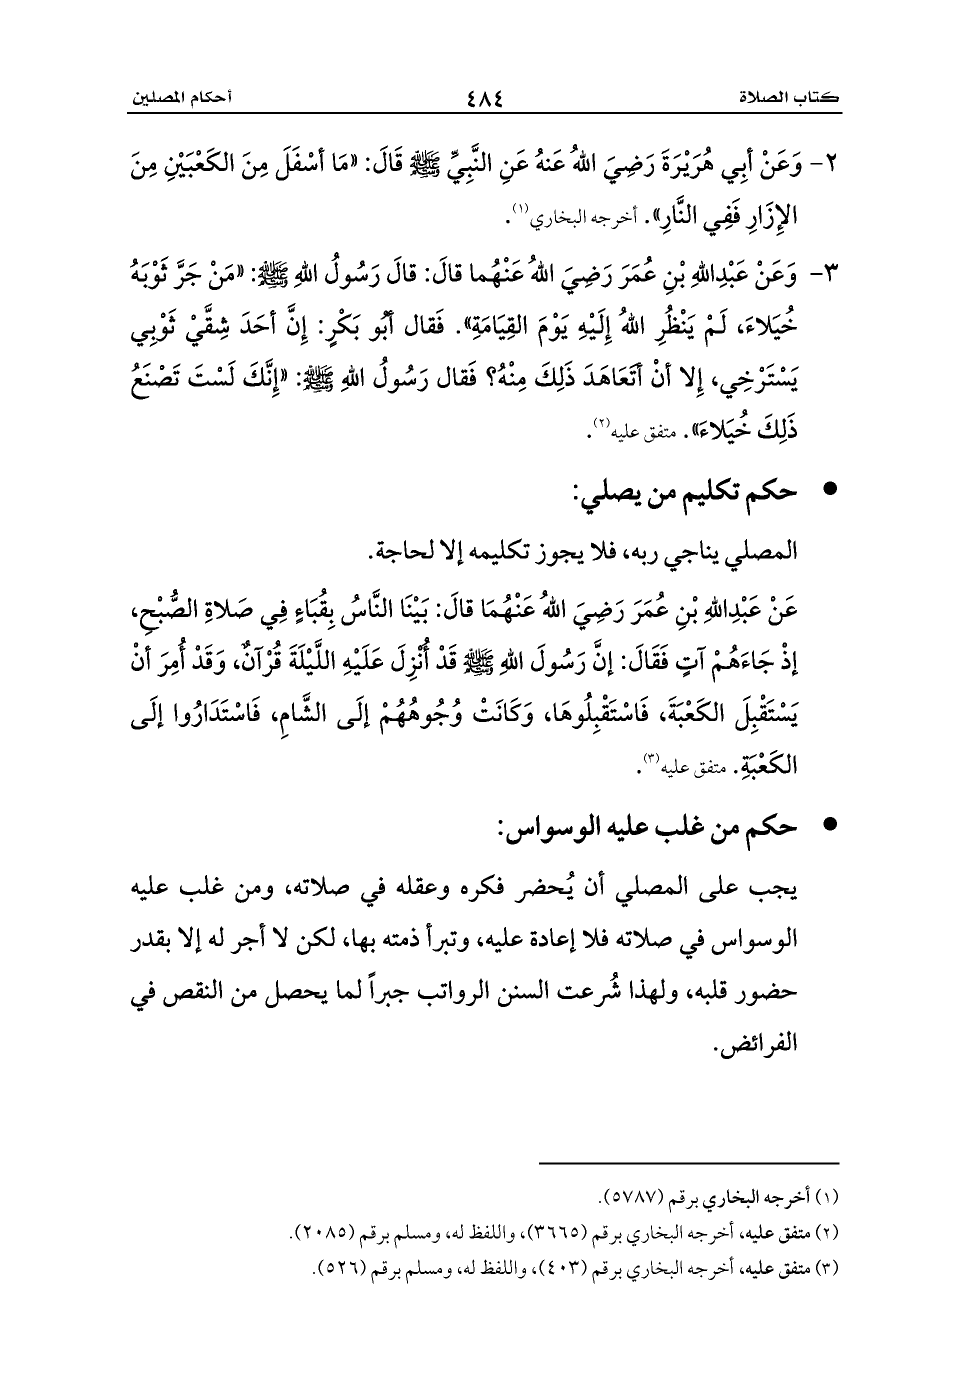 كتاب الصلاة ٤٨٤ أحكام المصلين
٢- وَعَنْ أبِي هُرَيْرَةَ رَضِيَ اللهُ عَنهُ عَنِ النَّبِيِّ ﷺ قَالَ: «مَا أسْفَلَ مِنَ الكَعْبَيْنِ مِنَ
الإزَارِ فَفِي النَّارِ». أخرجه البخاري(١).
٣- وَعَنْ عَبْدِاللهِ بْنِ عُمَرَ رَضِيَ اللهُ عَنْهُما قالَ: قالَ رَسُولُ اللهِ ﷺ: «مَنْ جَرَّ ثَوْبَهُ
خُيَلاءَ، لَمْ يَنْظُرِ اللهُ إلَيْهِ يَوْمَ القِيَامَةِ». فَقال أبُو بَكْرٍ: إنَّ أحَدَ شِقَّيْ ثَوْبِي
يَسْتَرْخِي، إلا أنْ أتَعَاهَدَ ذَلِكَ مِنْهُ؟ فَقال رَسُولُ اللهِ ﷺ: «إنَّكَ لَسْتَ تَصْنَعُ
ذَلِكَ خُيَلاءَ». متفق عليه(٢).
• حكم تكليم من يصلي:
المصلي يناجي ربه، فلا يجوز تكليمه إلا لحاجة.
عَنْ عَبْدِاللهِ بْنِ عُمَرَ رَضِيَ اللهُ عَنْهُمَا قالَ: بَيْنَا النَّاسُ بِقُبَاءٍ فِي صَلاةِ الصُّبْحِ،
إذْ جَاءَهُمْ آتٍ فَقَالَ: إنَّ رَسُولَ اللهِ ﷺ قَدْ أُنْزِلَ عَلَيْهِ اللَّيْلَةَ قُرْآنٌ، وَقَدْ أُمِرَ أنْ
يَسْتَقْبِلَ الكَعْبَةَ، فَاسْتَقْبِلُوهَا، وَكَانَتْ وُجُوهُهُمْ إلَى الشَّامِ، فَاسْتَدَارُوا إلَى
الكَعْبَةِ. متفق عليه(٣).
• حكم من غلب عليه الوسواس:
يجب على المصلي أن يُحضر فكره وعقله في صلاته، ومن غلب عليه
الوسواس في صلاته فلا إعادة عليه، وتبرأ ذمته بها، لكن لا أجر له إلا بقدر
حضور قلبه، ولهذا شُرعت السنن الرواتب جبراً لما يحصل من النقص في
الفرائض.
(١) أخرجه البخاري برقم (٥٧٨٧).
(٢) متفق عليه، أخرجه البخاري برقم (٣٦٦٥)، واللفظ له، ومسلم برقم (٢٠٨٥).
(٣) متفق عليه، أخرجه البخاري برقم (٤٠٣)، واللفظ له، ومسلم برقم (٥٢٦).